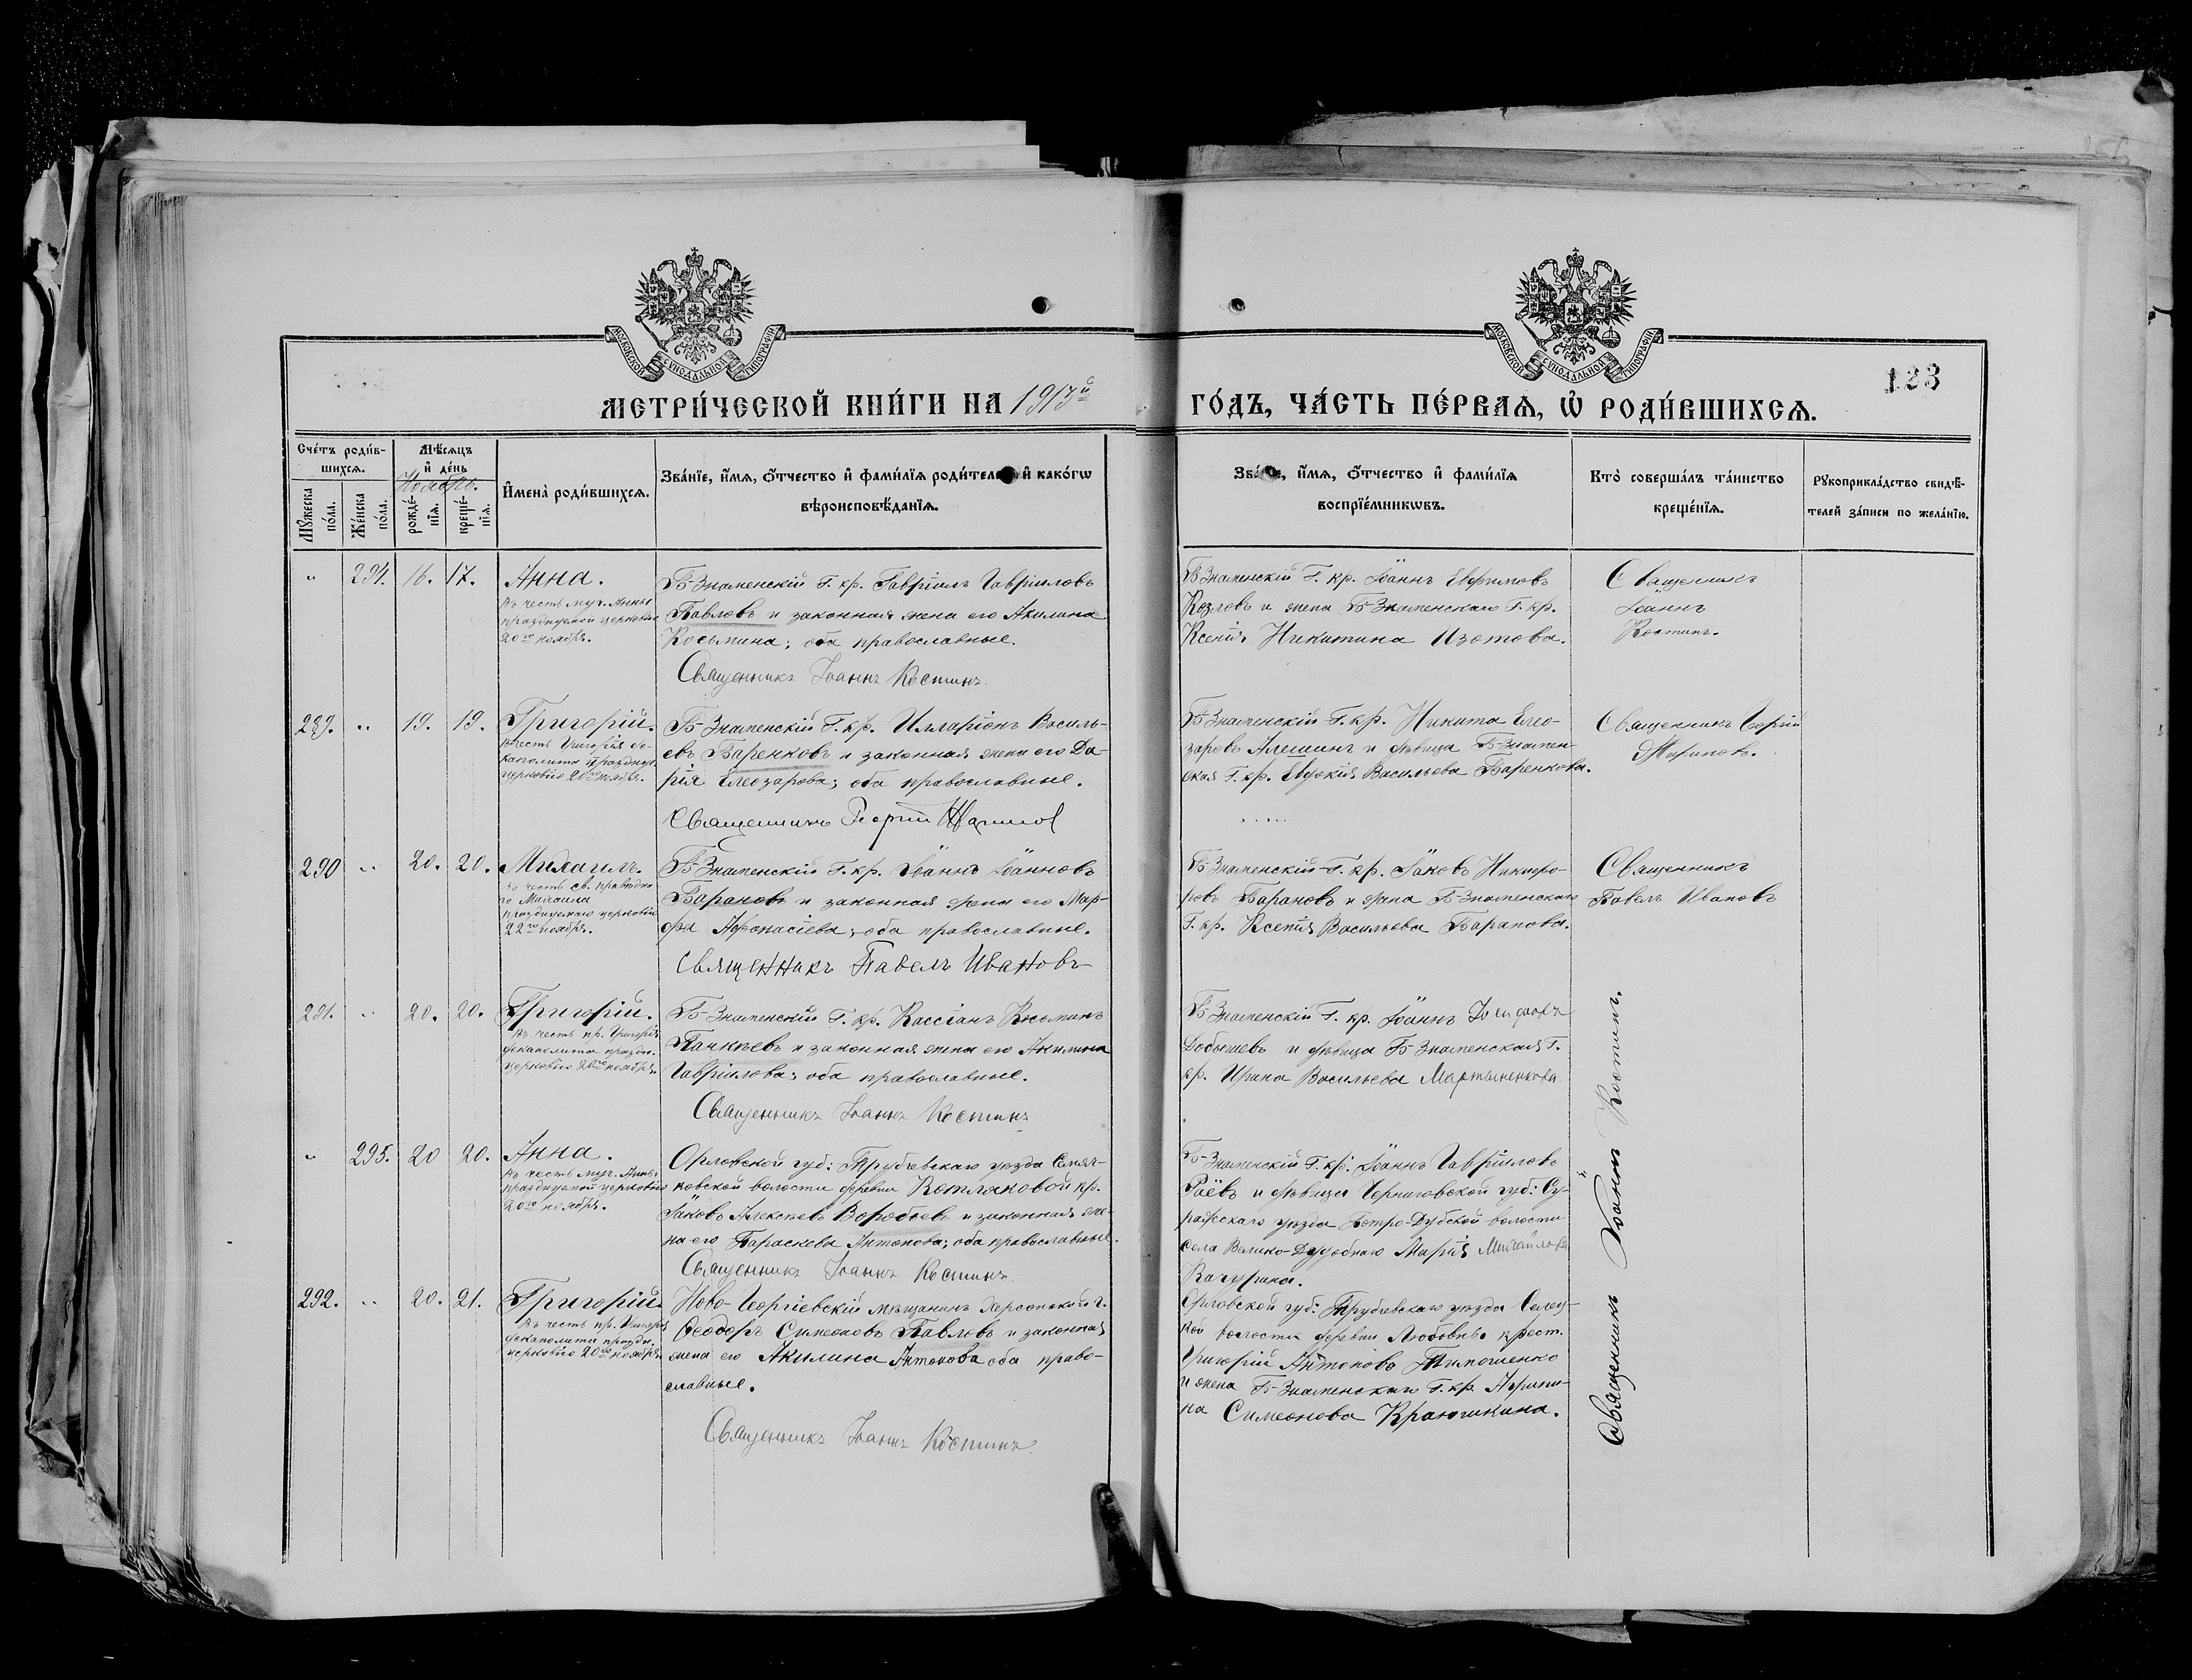 МОСКОВСКОЙ СУНОДАЛЬНОЙ ТИПОГРАФІИ
МОСКОВСКОЙ СУНОДАЛЬНОЙ ТИПОГРАФІИ
123
МЕТРИ́ЧЕСКОЙ КНИ́ГИ НА 1913й ГО́ДЪ, ЧА́СТЬ ПЕ́РВАЯ, Ѡ҆ РОДИ́ВШИХСЯ.
Сче́тъ роди́в-
шихся.
Мꙋжеска по́ла.
Же́нска по́ла.
Мѣ́сяцъ
и҆ де́нь
Ноябрь.
рожде́-
нія.
креще́-
нія.
И҆мена̀ роди́вшихся.
Зва́ніе, и҆́мя, о҆́тчество и҆ фами́лїя роди́телей и҆ како́гѡ
вѣроисповѣ́данїя.
Зва́ніе, и҆́мя, о҆́тчество и҆ фами́лїя
воспрїе́мникѡвъ.
Кто̀ соверша́лъ та́инство
креще́нїя.
Рꙋкоприкла́дство свидѣ́-
телей за́писи по жела́нїю.
" 294. 16. 17. Анна.
Въ честь муч. Анны
празднуемой церковью
20го ноября.
Б-Знаменскій Г. кр. Гавріилъ Гавріиловъ
Павловъ и законная жена его Акилина
Косьмина; оба православные.
Священникъ Іоаннъ Костинъ
Б-Знаменскій Г. кр. Іоаннъ Евфимовъ
Козловъ и жена Б-Знаменскаго Г. кр.
Ксенія Никитина Изотова.
Священникъ
Іоаннъ
Костинъ.
289. " 19. 19. Григорій.
Въ честь Григорія де-
каполита праздную
церковью 20го ноября.
Б-Знаменскій Г. кр. Илларіонъ Василь-
евъ Баренковъ и законная жена его Да-
рія Елеозарова; оба православные.
Священникъ Георгій
Б-Знаменскій Г. кр. Никита Елео-
заровъ Алешинъ и дѣвица Б-Знамен-
ская Г. кр. Евдокія Васильева Баренкова.
Священникъ Георгій
290 " 20. 20. Михаилъ.
въ честь св. праведна
го Михаила
празднуемаго церковью
22го ноября.
Б-Знаменскій Г. кр. Іоаннъ Іоанновъ
Барановъ и законная жена его Мар-
фа Афонасіева; оба православные.
Священникъ Павелъ Ивановъ
Б-Знаменскій Г. кр. Іаковъ Никифо-
ровъ Барановъ и жена Б-Знаменскаго
Г. кр. Ксенія Васильева Баранова.
Священникъ
Павелъ Ивановъ
291. " 20. 20. Григорій.
Въ честь пр. Григорія
декаполита праздн.
церковью 20го ноября.
Б-Знаменскій Г. кр. Кассіанъ Косьминъ
и законная жена его Акилина
Гавріилова; оба православные.
Священникъ Іоаннъ Костинъ
Б-Знаменскій Г. кр. Іоаннъ
и дѣвица Б-Знаменская Г.
кр. Ирина Васильева Мартыненкова
" 295. 20 20. Анна.
Въ честь муч. Анны
празднуемой церковью
20го ноября.
Орловской губ: Трубчевскаго уѣзда Семяч-
ковской волости деревни Котляковой кр.
Іаковъ Алексѣевъ Воробьевъ и законная же-
на его Параскева Антонова; оба православные.
Священникъ Іоаннъ Костинъ
Б-Знаменскій Г. кр. Іоаннъ Гавріиловъ
и дѣвица Черниговской губ: Су-
ражскаго уѣзда волости
села Марія Михайлова
292. " 20. 21. Григорій.
Въ честь пр. Григорія
декаполита праздн.
церковью 20го ноября.
Ново-Георгіевскій мѣщанинъ Херсонской г.
Ѳеодоръ Симеоновъ Павловъ и законная
жена его Акилина Антонова оба право-
славные.
Священникъ Іоаннъ Костинъ
Орловской губ: Трубчевскаго уѣзда Селец-
кой волости деревни крест.
Григорій Антоновъ Тимошенко
и жена Б-Знаменскаго Г. кр. Агрипи-
на Симеонова Краюшкина.
Священникъ Іоаннъ Костинъ.